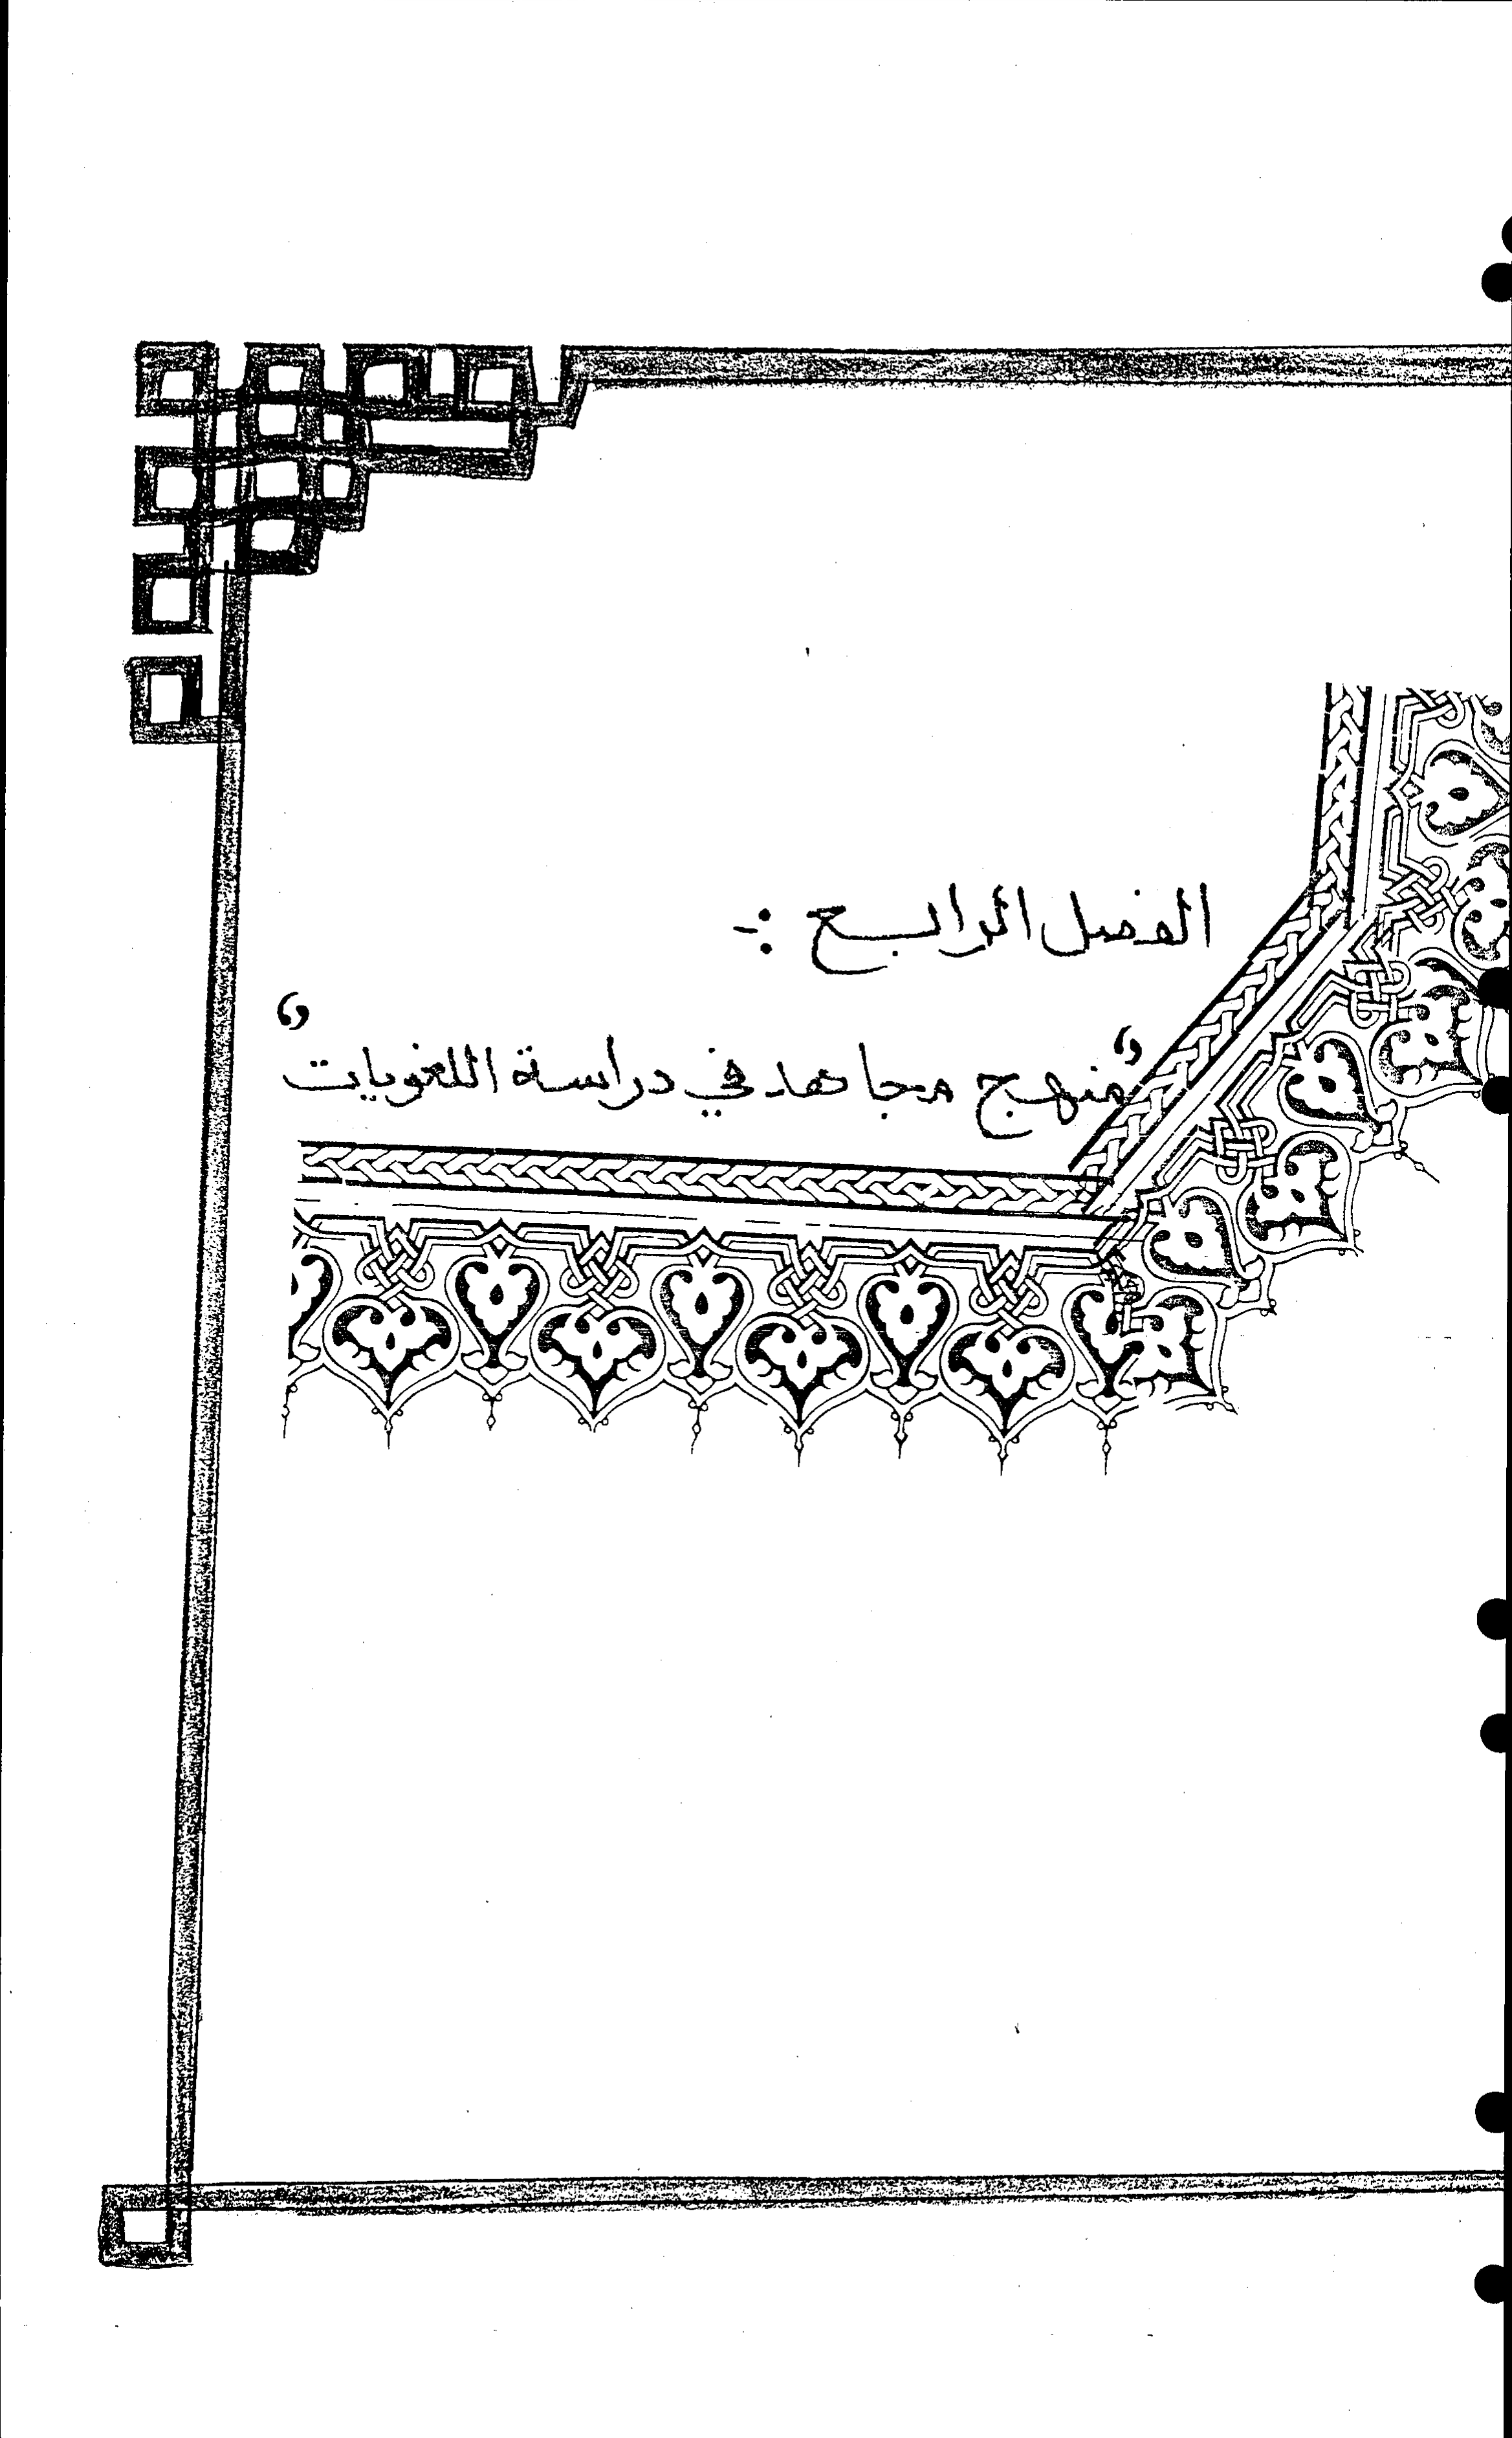 الفصل الرابع :-
"منهج مجاهد في دراسة اللغويات"